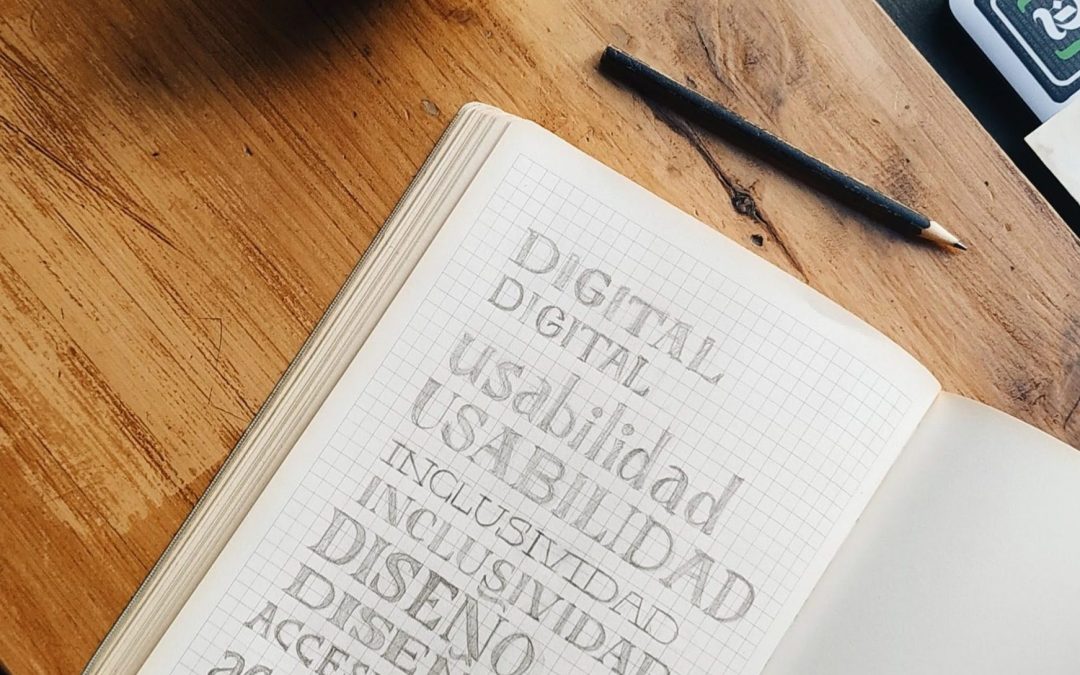 DIGITAL
DIGITAL
usabilidad
USABILIDAD
INCLUSIVIDAD
INCLUSIVIDAD
DISEÑO
DISEÑ
ACCES
ac